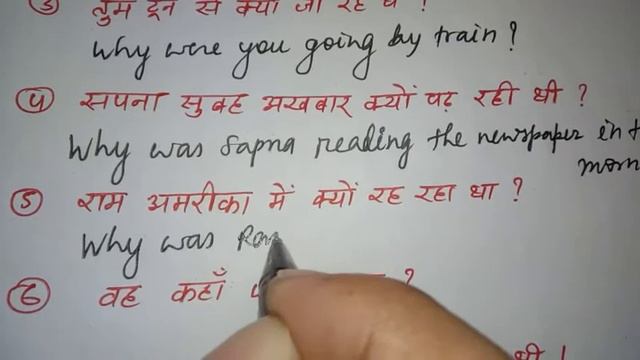 ③ तुम ट्रेन से क्यों जा रहे थे ?
Why were you going by train ?
④ सपना सुबह अखबार क्यों पढ़ रही थी ?
Why was Sapna reading the newspaper in t
morn
⑤ राम अमरीका में क्यों रह रहा था ?
Why was Ram
⑥ वह कहाँ ?
थी ।